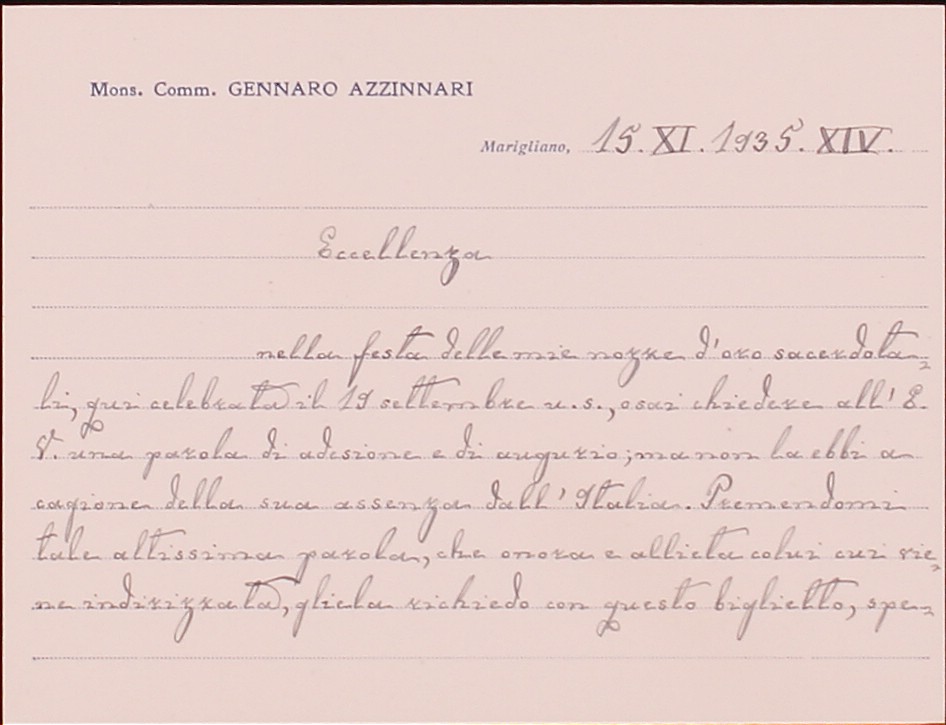 Mons. Comm. GENNARO AZZINNARI
Marigliano, 15. XI. 1935. XIV.
Eccellenza
nella festa delle mie nozze d'oro sacerdota=
li, qui celebrata il 19 settembre u. s., osai chiedere all' E.
V. una parola di adesione e di augurio; ma non la ebbi a
cagione della sua assenza dall' Italia. Premendomi
tale altissima parola, che onora e allieta colui cui vie=
ne indirizzata, gliela richiedo con questo biglietto, spe=